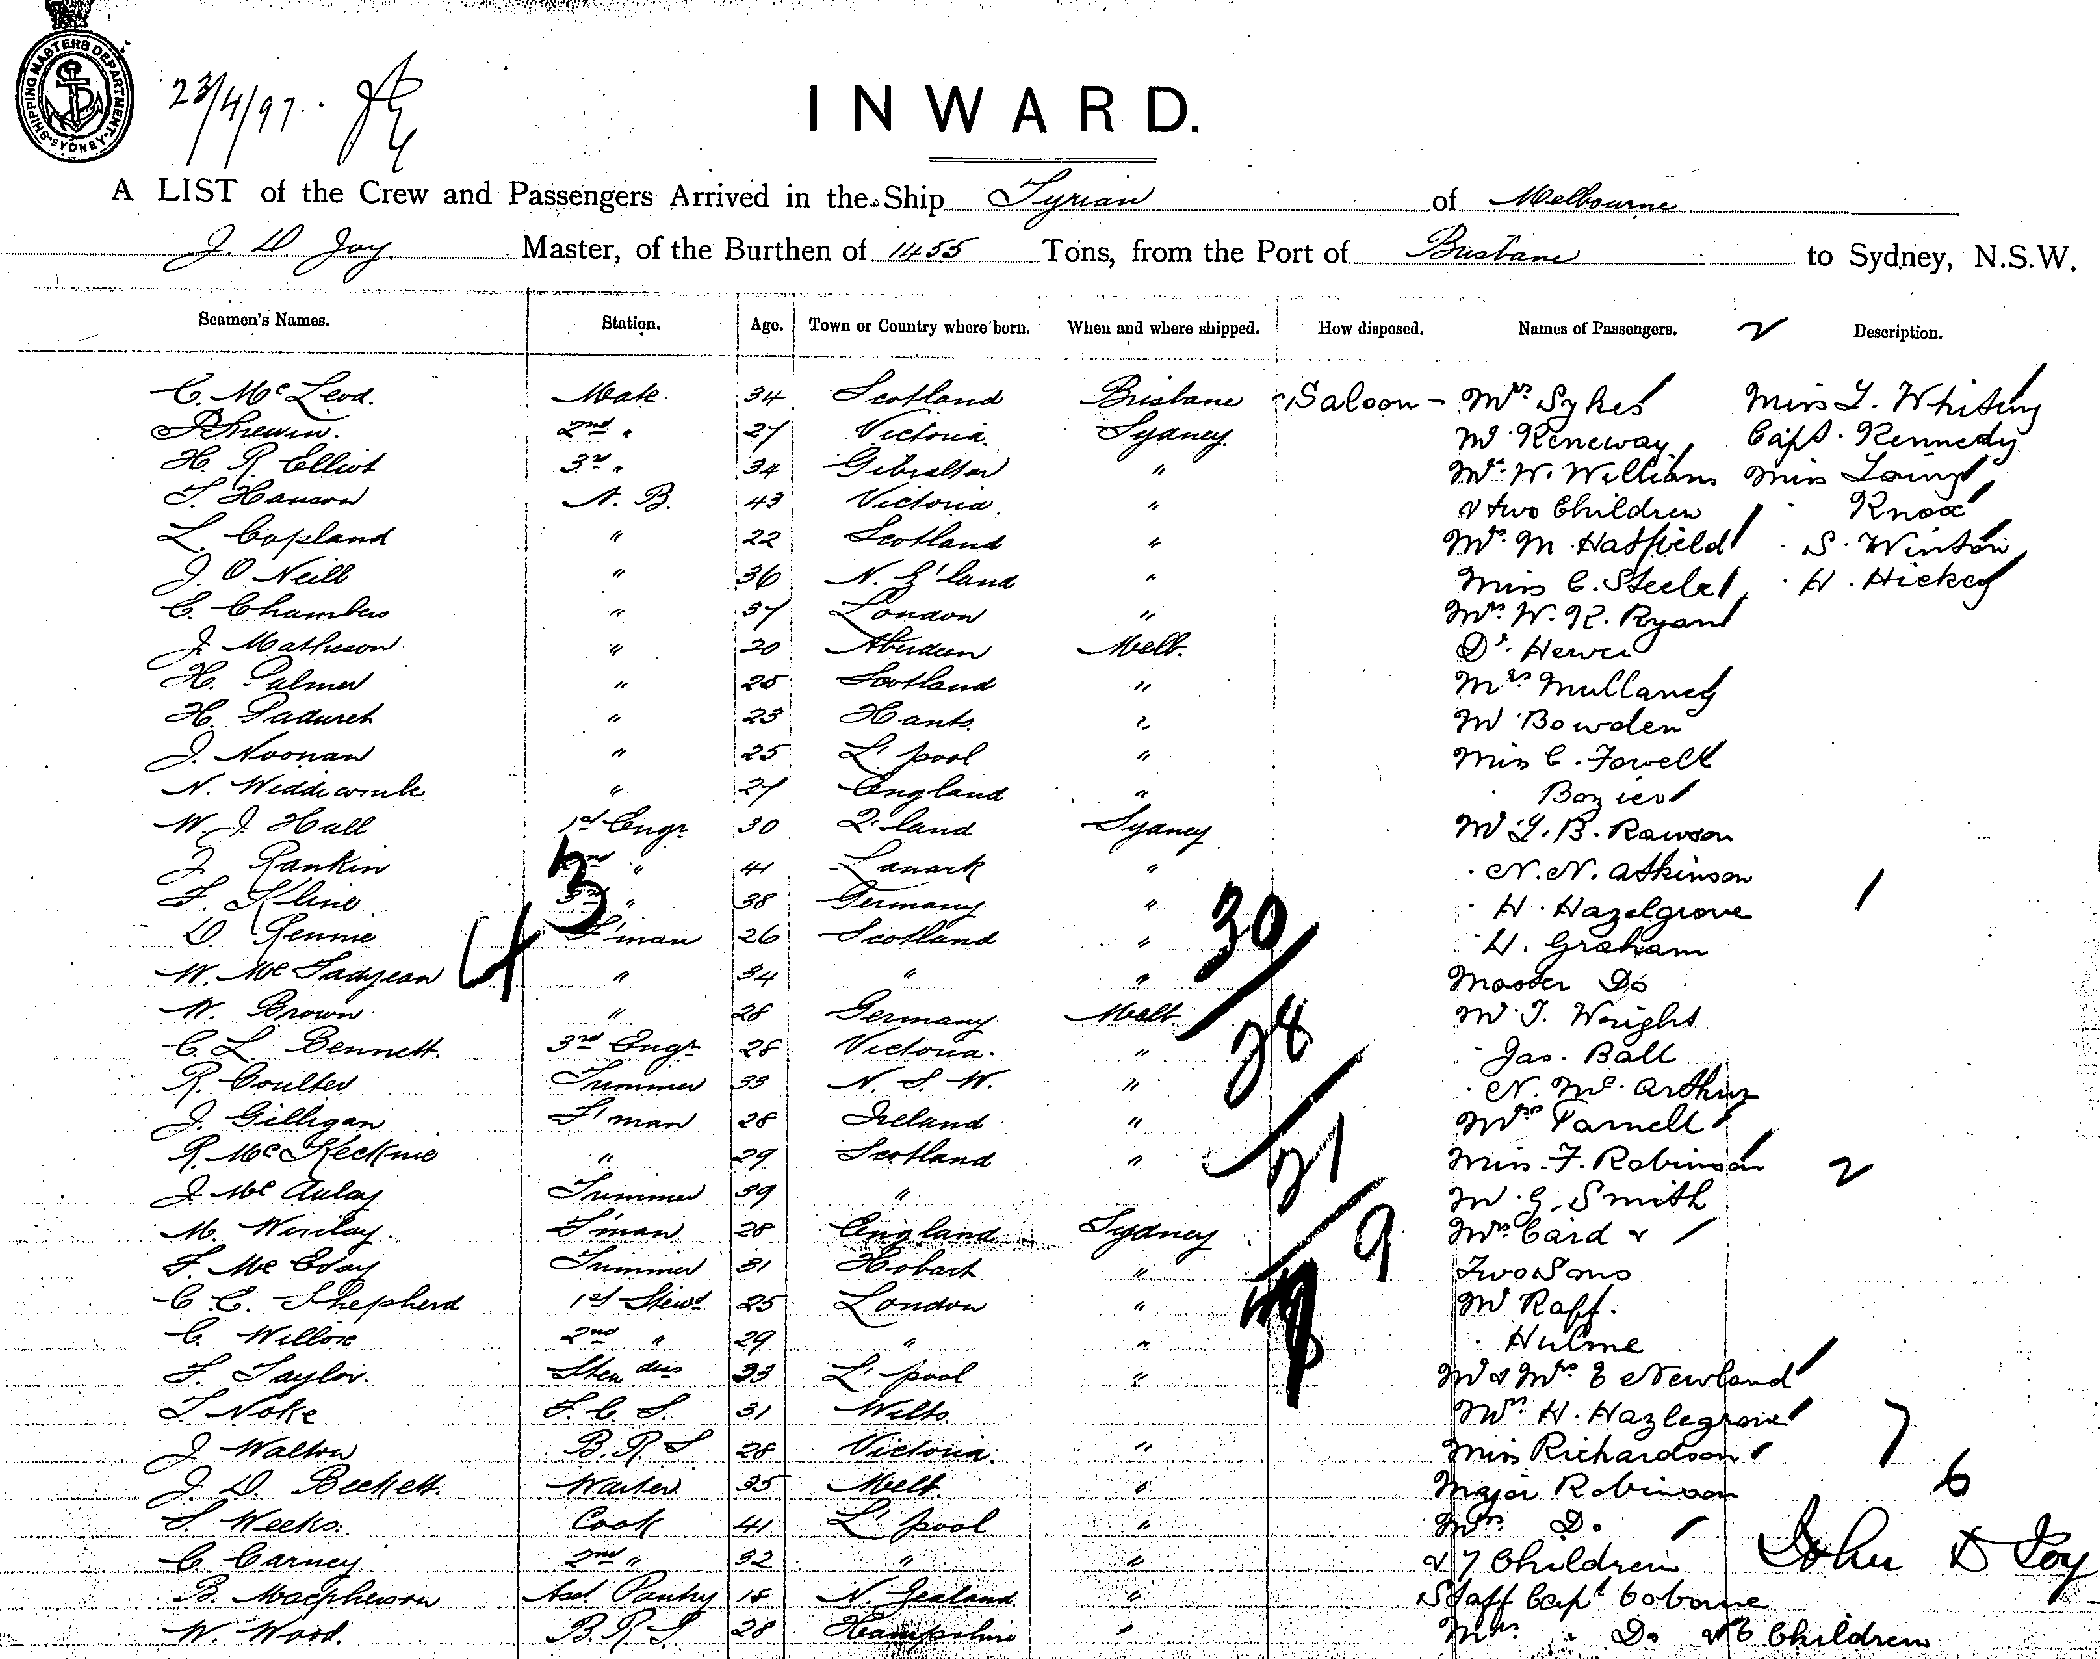 SHIPPING MASTERS DEPARTMENT SYDNEY
23/4/97.
INWARD.
A LIST of the Crew and Passengers Arrived in the Ship Tyrian of Melbourne
J. D. Joy Master, of the Burthen of 1455 Tons, from the Port of Brisbane to Sydney, N.S.W.
Seamen's Names. Station. Age. Town or Country where born. When and where shipped. How disposed. Names of Passengers. 2 Description.
C. McLeod. Mate. 34 Scotland Brisbane Saloon - Mrs Sykes Miss L. Whiting
2nd " 27 Victoria. Sydney Mr Keneway Capt. Kennedy
H. R. Elliot 3rd " 34 Gibraltar " Mrs W. Williams Miss Laing
T. Hanson A. B. 43 Victoria. " & two Children " Knox
L. Copland " 22 Scotland " Mrs. M Hatfield " S. Winton
J. O'Neill " 36 N. Z'land " Miss C. Steele " H. Hickey
C. Chambers " 37 London " Mrs. W. R. Ryan
J. Matheson " 20 Aberdeen Melb. Dr. Hewer
H. Palmer " 25 Scotland " Mrs Mullaney
H. " 23 Hants. " Mr Bowden
J. Noonan " 25 L'pool " Miss C. Fowell
N. Widdicombe " 27 England " " Bozier
W. J. Hall 1st Engr 30 Q'land Sydney Mr G. B. Rawson
J. Rankin 2nd " 41 Lanark " " N. N. Atkinson
F. Kline 3rd " 38 Germany " " H. Hazelgrove 1
D. Rennie F'man 26 Scotland " " H. Graham
W. Mc Fadyean " 34 " " Master Do
W. Brown " 28 Germany Melb. Mr T. Wright
C. L. Bennett. 3rd Engr 28 Victoria. " " Jas. Ball
R. Coulter Trimmer 33 N. S. W. " " N. Mc Arthur
J. Gilligan F'man 28 Ireland " Mrs Parnell
R. McKechnie " 29 Scotland " Miss. F. Robinson 2
J. Mc Aulay Trimmer 39 " " Mr G. Smith
M. F'man 28 England Sydney Mrs Card &
F. Mc Trimmer 31 Hobart " Two Sons
C. C. Shepherd 1st Stewd 25 London " Mr Raff.
C. Willox 2nd " 29 " " " Hulme
F. Taylor. Stewdess 33 L'pool " Mr & Mrs E Newland
T. Noke F. C. S. 31 Wilts. Mrs H. Hazlegrove 7
J. Walton B. R. S 28 Victoria. " Miss Richardson
J. D. Beckett. Waiter 35 Melb. " Major Robinson 6
S. Weeks. Cook 41 L'pool " Mrs Do
C. Carney 2nd " 32 " " & 7 Children John D Joy
B. Macpherson Asst Pantry 18 N. Zealand " Staff Capt Coborne
W. Wood. B. R. S. 28 Hampshire " Mrs " Do & 6 Children
3
4
30
28
21
9